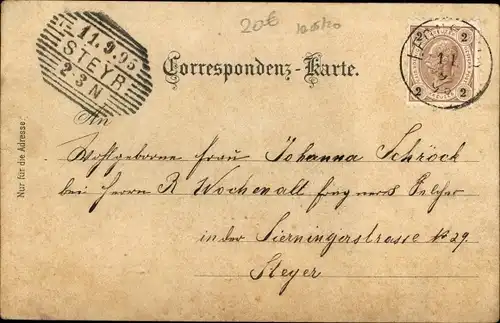 20€
11.9.95
STEYR
2-3 N
2 2
2 2
Correspondenz-Karte.
An
Nur für die Adresse.
Wohlgeborne Frau Johanna Schröck
bei Herrn R Wochenalt
in der Sierningerstrasse No 29.
Steyer